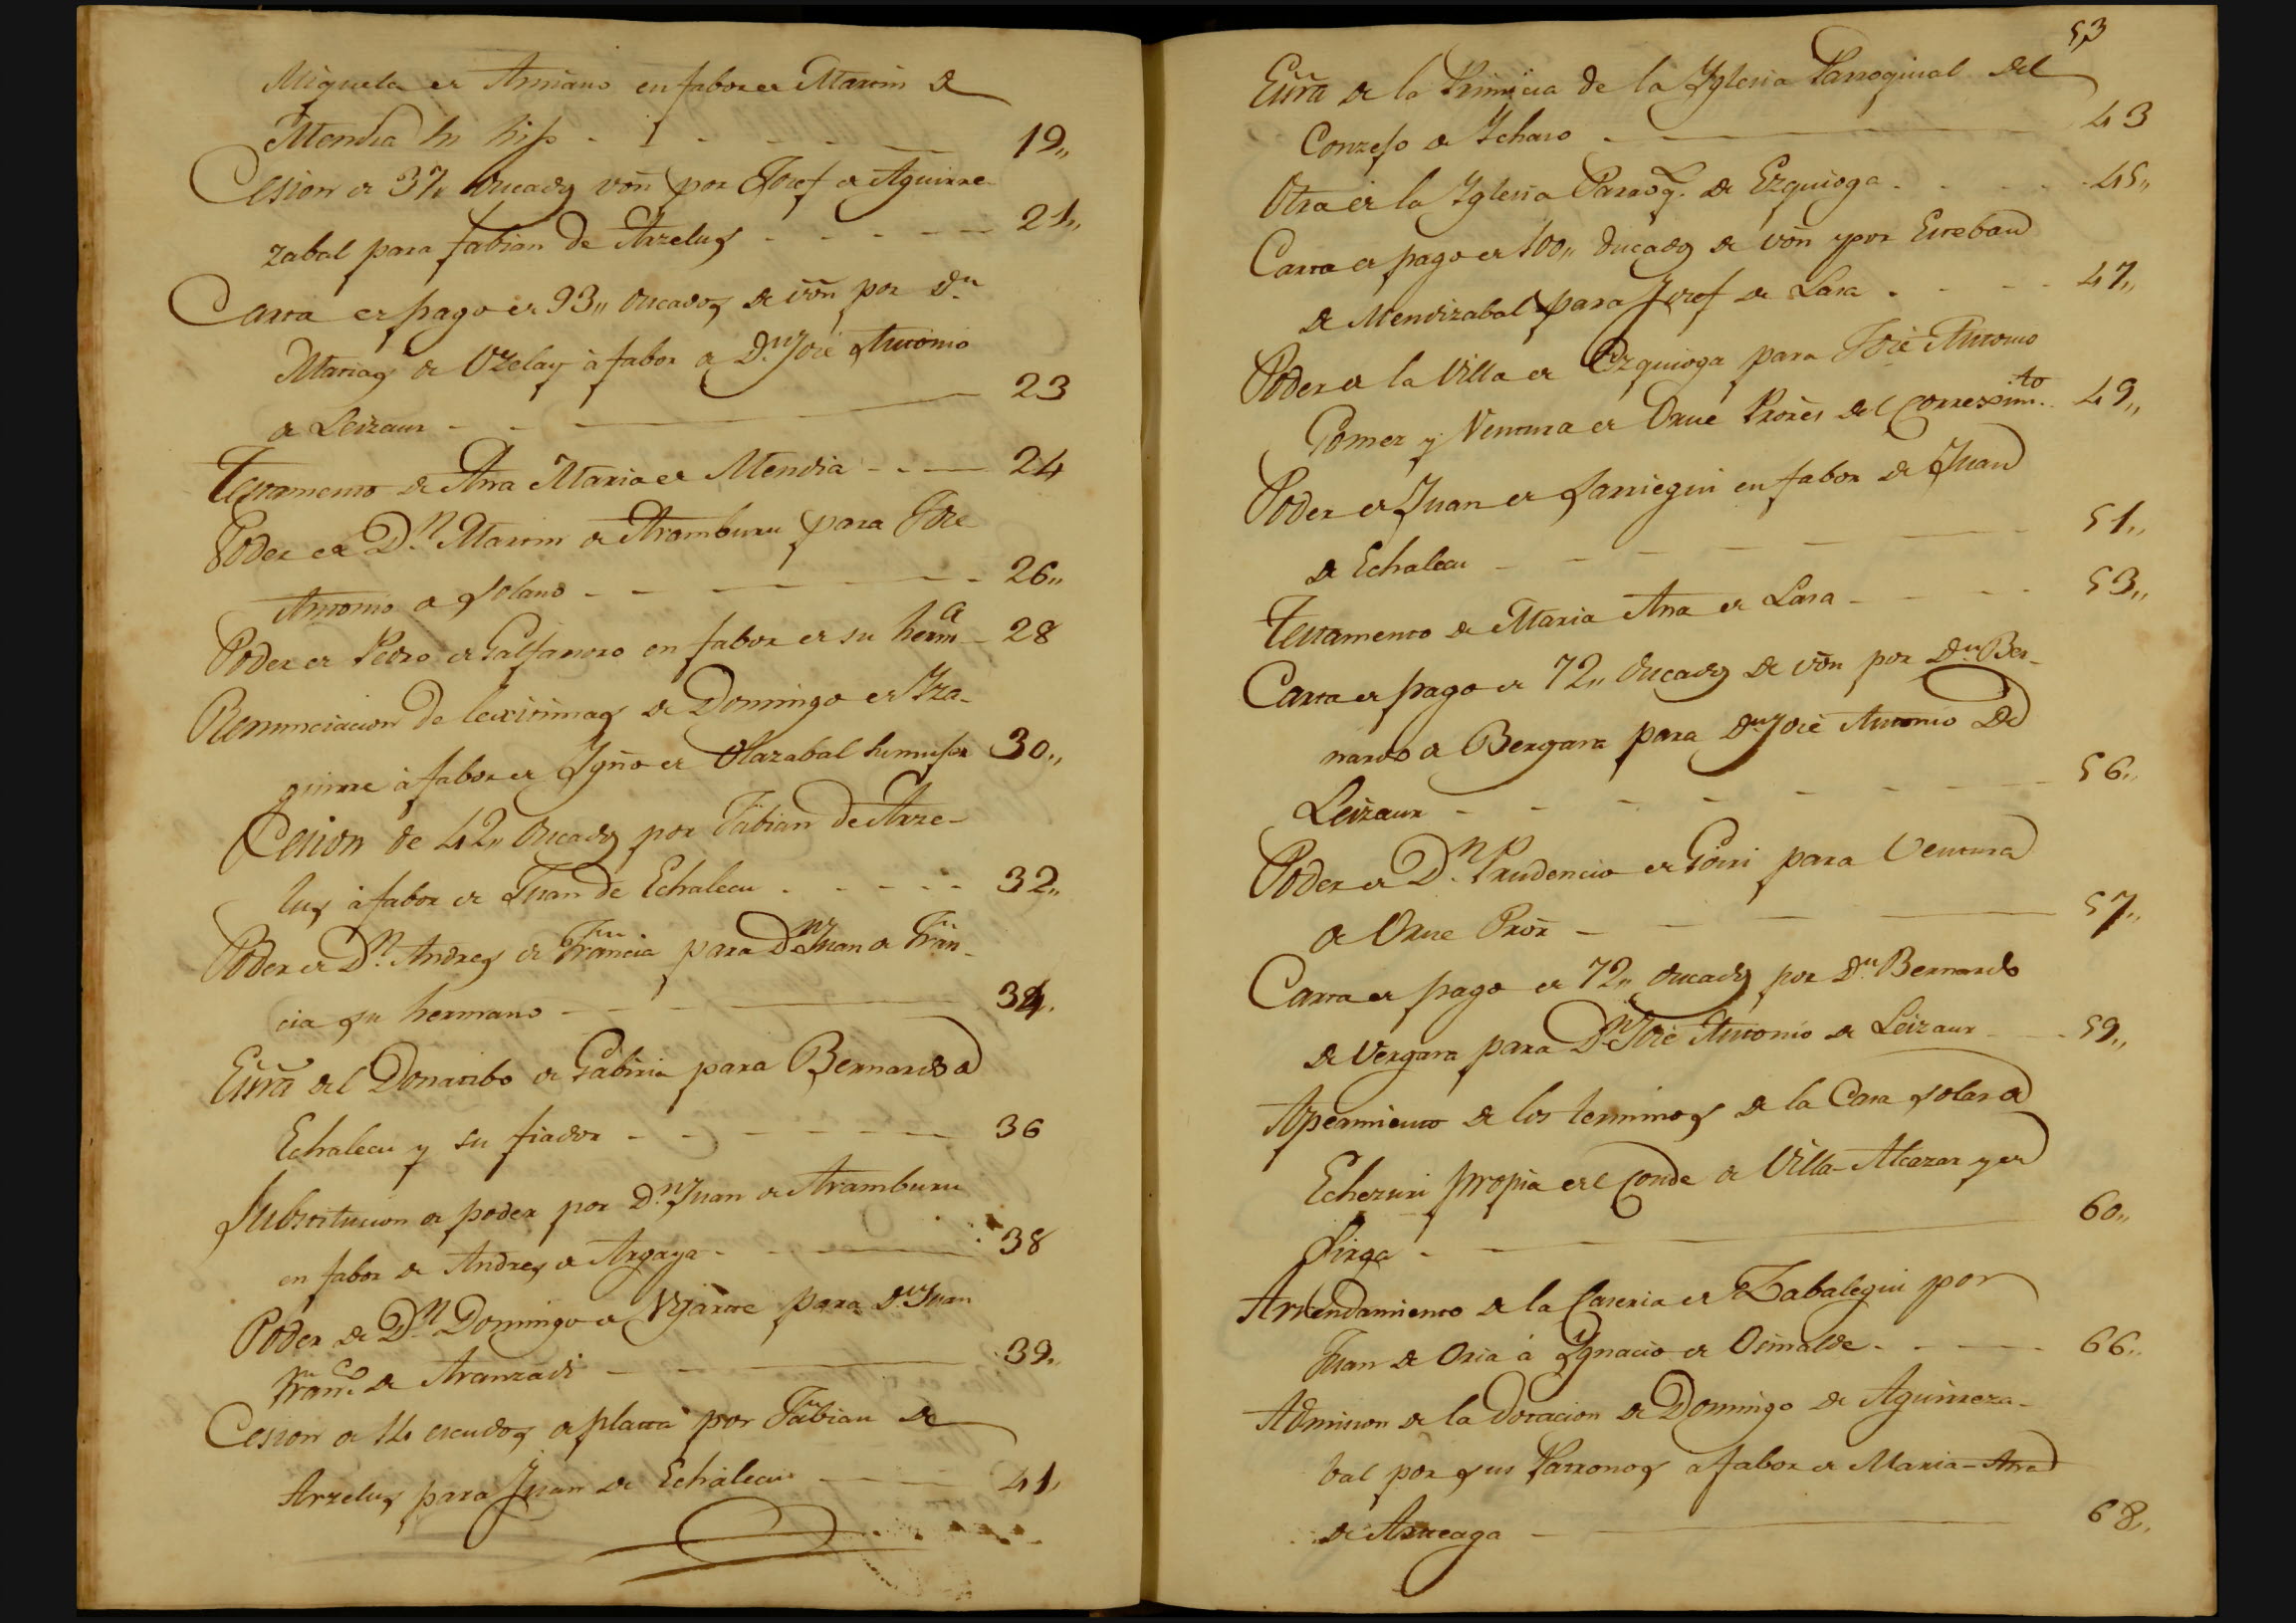 Miquela de Arriano en fabor de Martin de
Mendia su hijo - - - - 19,,
Cesion de 37,, ducados von por Josef de Aguirre-
zabal para fabian de Arzelus - - - - - 21,,
Carta de pago de 93,, ducados de von por Dn
Matias de Ozelay à fabor de Dn José Antonio
de Leizaur - - 23
Testamento de Ana Maria de Mendia - - - 24
Poder de Dn Martin de Aramburu para José
Antonio de Solano - - - - - - 26,,
Poder de Pedro de Galfarsoro en fabor de su herma - 28
Renunciacion de lexitimas de Domingo de Yza-
guirre à fabor de Ygno de Olazabal su muger 30,,
Cesion de 42,, ducados por Fabian de Arze-
lus à fabor de Juan de Echalecu - - - - - 32,,
Poder de Dn Andres de Francia para Dn Juan de Fran-
cia su hermano - - - - 34,
Essra del Donatibo de Gabiria para Bernardo de
Echalecu y su fiador - - - - - - 36
Substitucion de poder por Dn Juan de Aramburu
en fabor de Andres de Argaya - - - 38
Poder de Dn Domingo de Ugarte para Dn Juan
Franco de Aranzadi - - - 39,,
Cesion de 14 escudos de platta por Fabian de
Arzelus para Juan de Echalecu - - - 41,
53
Essra de la Primicia de la Yglesia Parroquial del
Conzejo de Ychaso - - - - - 43
Otra de la Yglesia Parroql. de Ezquioga - - - - 45,,
Carta de pago de 100,, ducados de von por Esteban
de Mendizabal para Josef de Lasa - - - 47,,
Poder de la Villa de Ezquioga para José Antonio
Gomez y Ventura de Orue Prores del Correximto. 49,,
Poder de Juan de Sarriegui en fabor de Juan
de Echalecu - - - - - - 51,,
Testamento de Maria Ana de Lasa - - - - 53,,
Carta de pago de 72,, ducados de von por Dn Ber-
nardo de Bergara para Dn José Antonio De
Leizaur - - - - - - - 56,,
Poder de Dn. Prudencio de Goiri para Ventura
de Orue Pror - - - - 57,,
Carta de pago de 72,, ducados por Dn Bernardo
de Vergara para Dn José Antonio de Leizaur - - 59,,
Apeamiento de los terminos de la Casa solar de
Echezuri propia del Conde de Villa-Alcazar de
Sirga - - 60,,
Arrendamiento de la Caseria de Zabalegui por
Juan de Oria á Ygnacio de Osinalde - - - - 66,,
Admision de la dotacion de Domingo de Aguirreza-
bal por sus Patronos a fabor de Maria-Ana
de Arzeaga - - 68,,